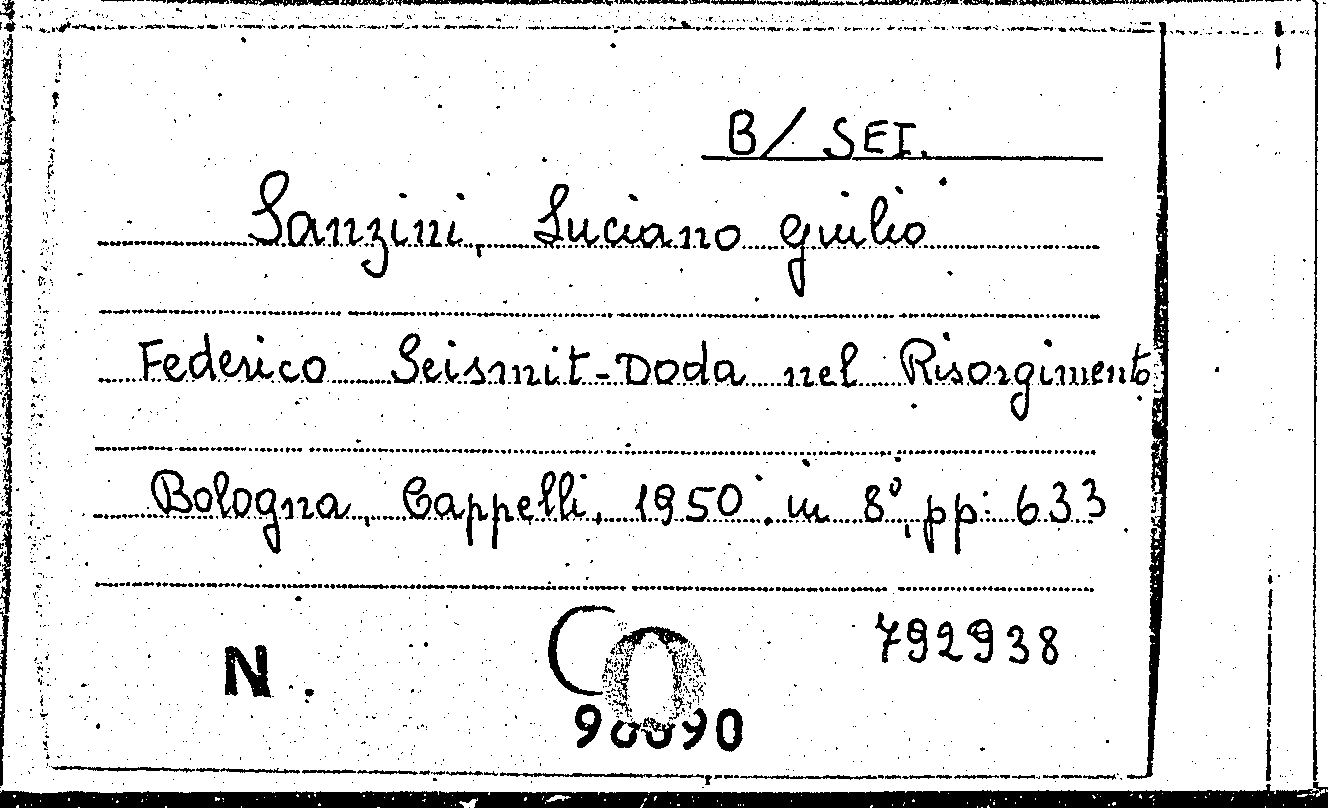 B/ SEI.
Sanzini, Luciano Giulio
Federico Seismit-Doda nel Risorgimento
Bologna, Cappelli, 1950. in 8°, pp: 633
792938
N.